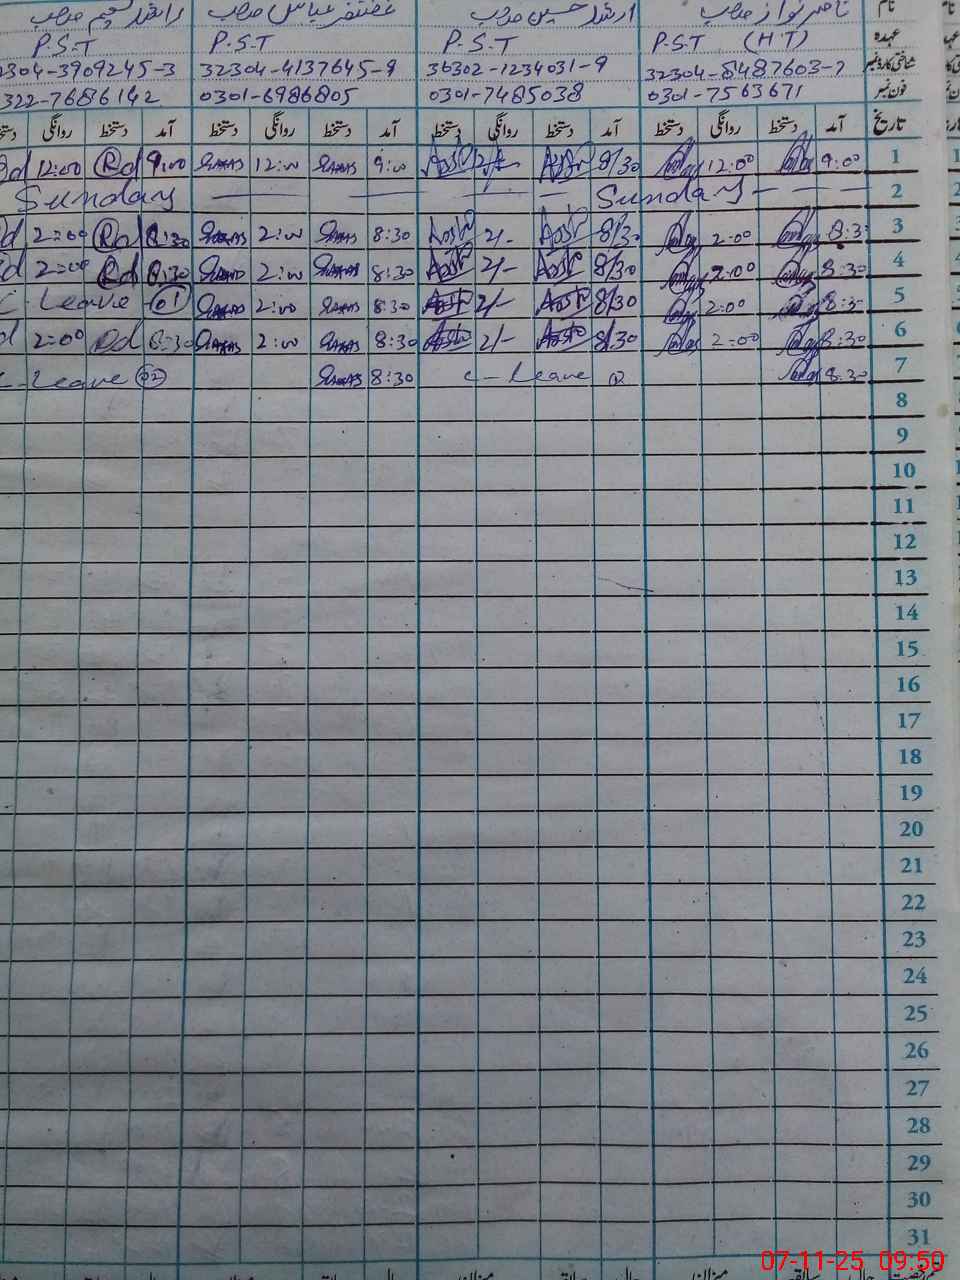 نام ناصر نواز صاحب ارشد حسین صاحب غضنفر عباس صاحب راشد صاحب
عہدہ P.S.T (H T) P.S.T P.S.T P.S.T
شناختی کارڈ نمبر 32304-8487603-7 36302-1234031-9 32304-4137645-9 2304-3909245-3
فون نمبر 0301-7563671 0301-7485038 0301-6986805 322-7686142
تاریخ آمد دستخط روانگی دستخط آمد دستخط روانگی دستخط آمد دستخط روانگی دستخط آمد دستخط روانگی
1 9:00 12:00 8/30 12/- 9:00 12:00 9:00 Rd 12:00
2 Sunday Sunday
3 8:30 2:00 8/30 2/- 8:30 2:00 8:30 Rd 2:00
4 8:30 2:00 8/30 2/- 8:30 2:00 8:30 Rd 2:00
5 8:30 2:00 8/30 2/- 8:30 2:00 01 C-Leave
6 8:30 2:00 8/30 2/- 8:30 2:00 8:30 Rd 2:00
7 8:30 C-Leave 8:30 02 C-Leave
8
9
10
11
12
13
14
15
16
17
18
19
20
21
22
23
24
25
26
27
28
29
30
31
07-11-25 09:50